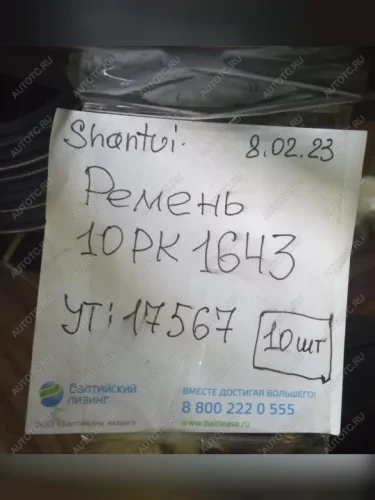 Shantui. 8.02.23
Ремень
10PK 1643
УТ: 17567 10 шт
Балтийский лизинг
ВМЕСТЕ ДОСТИГАЯ БОЛЬШЕГО!
8 800 222 0 555
ООО «Балтийский лизинг»
www.baltlease.ru
AUTOTC.RU